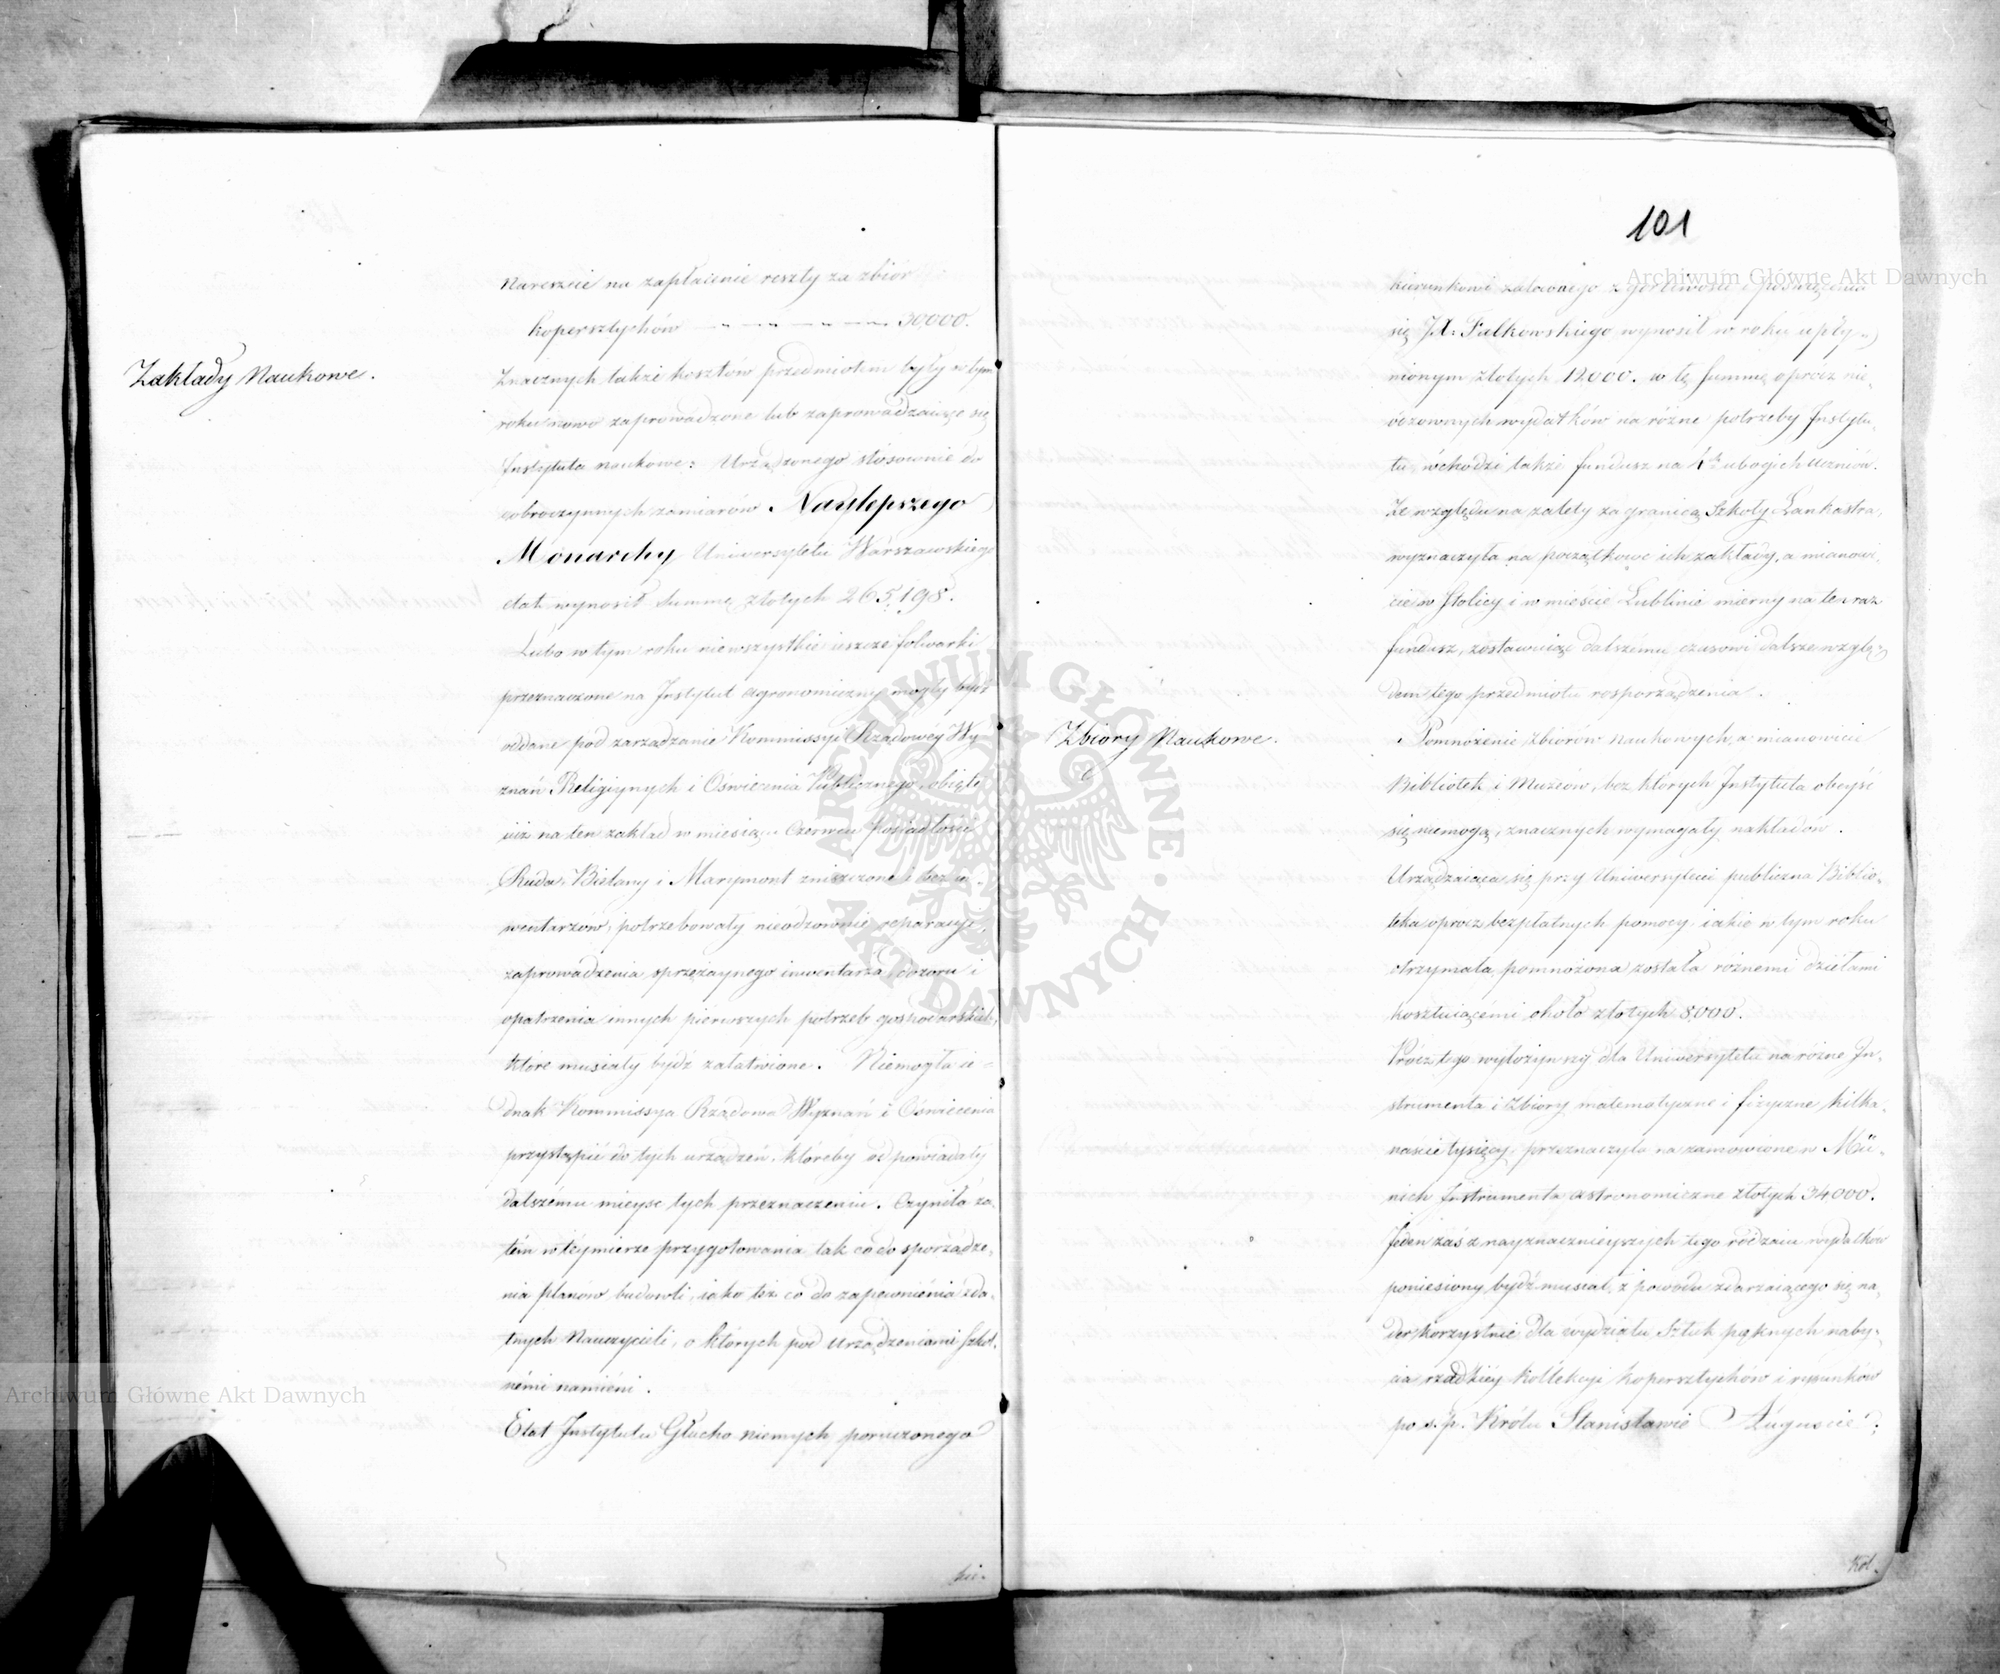 Nareszcie na zapłacenie reszty za zbiór
kopersztychów — „ — „ — „ — „ — 30,000.
Zakłady Naukowe.
Znacznych także kosztów przedmiotem były w tym
roku nowo zaprowadzone lub zaprowadzaiące się
Instytuta naukowe: Urządzonego stosownie do
dobroczynnych zamiarów Naylepszego
Monarchy Uniwersytetu Warszawskiego
etat wynosił Summę złotych 265,198.
Lubo w tym roku niewszystkie ieszcze folwarki
przeznaczone na Instytut agronomiczny mogły bydź
oddane pod zarządzanie Kommissyi Rządowéy Wy-
znań Religiynych i Oświecenia Publicznego, obięte
iuż na ten zakład w miesiącu Czerwcu posiadłości
Ruda, Bielany i Marymont zniszczone i bez in-
wentarzów, potrzebowały nieodzownie reparacyi,
zaprowadzenia sprzężaynego inwentarza, dozoru i
opatrzenia innych pierwszych potrzeb gospodarskich,
które musiały bydź załatwione. Niemogła ie-
dnak Kommissya Rządowa Wyznań i Oświecenia
przystąpić do tych urządzeń, któreby odpowiadały
dalszému mieysc tych przeznaczeniu. Czyniła za-
tém w téymierze przygotowania tak co do sporządze-
nia planów budowli, iako téż co do zapewniénia zda-
tnych Nauczycieli, o których pod Urządzeniami Szkol-
némi namiéni.
Etat Instytutu Głucho niemych poruczonego
kie-
101
kierunkowi zalecaiącego z gorliwości i poświęcenia
się JX: Falkowskiego wynosił w roku upły-
nionym złotych 12000. w tę Summę oprócz nie-
odzownych wydatków na różne potrzeby Instytu-
tu wchodzi także fundusz na 4ch ubogich Uczniów.
Ze względu na zalety zagranicą Szkoły Lankastra,
wyznaczyła na początkowe ich zakłady, a mianowi-
cie w Stolicy i w mieście Lublinie mierny na ten raz
fundusz, zostawuiąc dalszemu czasowi dalsze wzglę-
dem tego przedmiotu rosporządzenia.
Zbiory Naukowe.
Pomnożenie Zbiorów naukowych, a mianowicie
Bibliotek i Muzeów, bez których Instytuta obeyść
się niemogą, znacznych wymagały nakładów.
Urządzaiąca się przy Uniwersytecie publiczna Biblio-
teka oprócz bezpłatnych pomocy iakie w tym roku
otrzymała, pomnożona została różnemi dziełami
kosztuiącémi około złotych 8,000.
Prócz tego wyłożywszy dla Uniwersytetu na różne In-
strumenta i Zbiory matematyczne i fizyczne kilka-
naście tysięcy, przeznaczyła na zamówione w Mü-
nich Instrumenta astronomiczne złotych 34000.
Jeden zaś z nayznacznieyszych tego rodzaiu wydatków
poniesiony bydź musiał z powodu zdarzaiącego się na-
der korzystnie dla wydziału Sztuk pięknych naby-
cia rzadkiéy kollekcyi kopersztychów i rysunków
po ś. p. Królu Stanisławie Auguście;
Kol-
Archiwum Główne Akt Dawnych
Archiwum Główne Akt Dawnych
ARCHIWUM GŁÓWNE AKT DAWNYCH